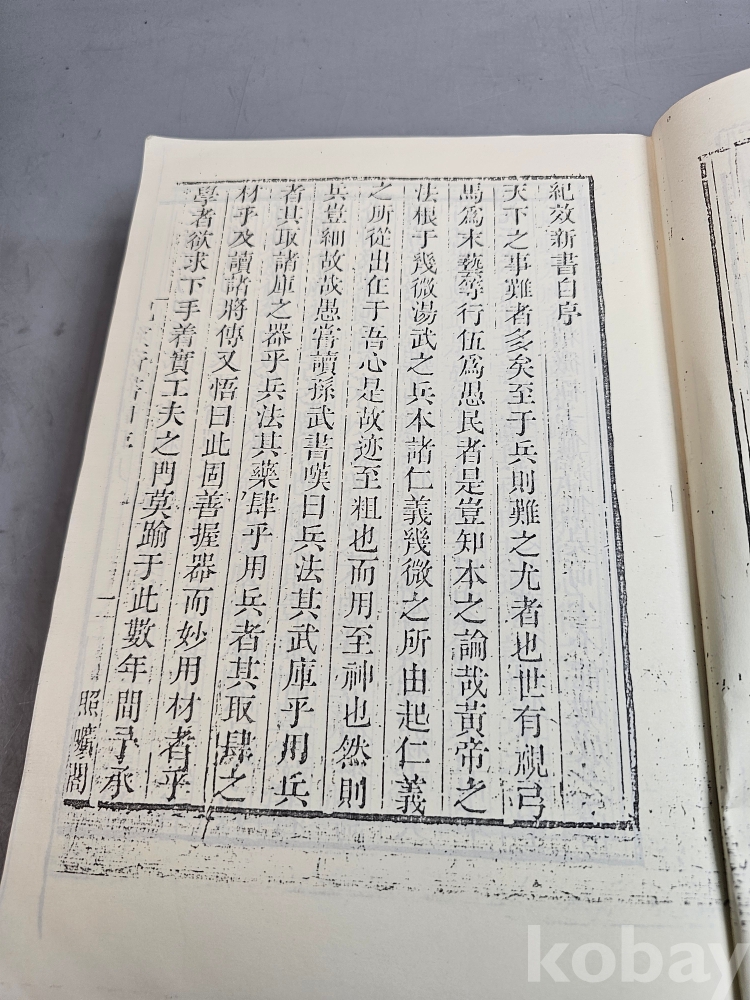 紀效新書自序
天下之事難者多矣至于兵則難之尤者也世有視弓
馬為末藝等行伍為愚民者是豈知本之論哉黃帝之
法根于幾微湯武之兵本諸仁義幾微之所由起仁義
之所從出在于吾心是故迹至粗也而用至神也然則
兵豈細故哉愚嘗讀孫武書嘆曰兵法其武庫乎用兵
者其取諸庫之器乎兵法其藥肆乎用兵者其取肆之
材乎及讀諸將傳又悟曰此固善握器而妙用材者乎
學者欲求下手着實工夫之門莫踰于此數年間予承
照曠閣
kobay